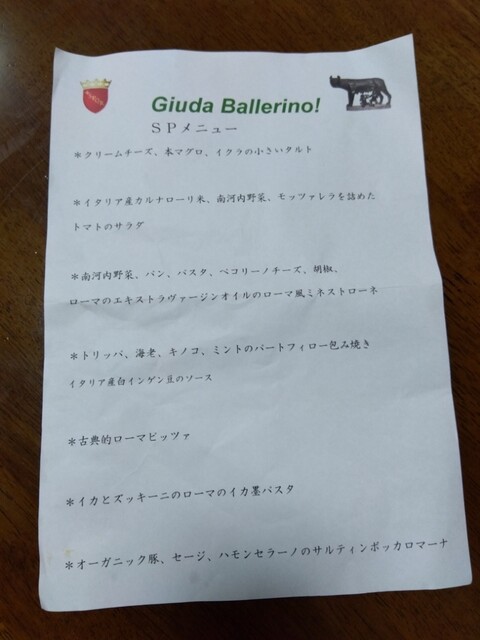 Giuda Ballerino!
ＳＰメニュー
＊クリームチーズ、本マグロ、イクラの小さいタルト
＊イタリア産カルナローリ米、南河内野菜、モッツァレラを詰めた
トマトのサラダ
＊南河内野菜、パン、パスタ、ペコリーノチーズ、胡椒、
ローマのエキストラヴァージンオイルのローマ風ミネストローネ
＊トリッパ、海老、キノコ、ミントのパートフィロー包み焼き
イタリア産白インゲン豆のソース
＊古典的ローマピッツァ
＊イカとズッキーニのローマのイカ墨パスタ
＊オーガニック豚、セージ、ハモンセラーノのサルティンボッカロマーナ